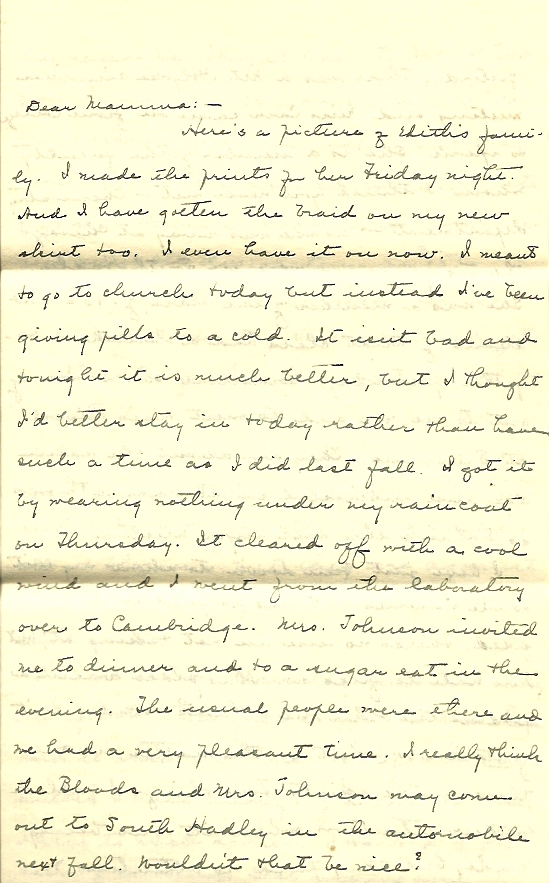 Dear Mamma:—
Here's a picture of Edith's fami-
ly. I made the prints for her Friday night.
And I have gotten the braid on my new
skirt too. I even have it on now. I meant
to go to church today but instead I've been
giving pills to a cold. It isn't bad and
tonight it is much better, but I thought
I'd better stay in today rather than have
such a time as I did last fall. I got it
by wearing nothing under my raincoat
on Thursday. It cleared off with a cool
wind and I went from the laboratory
over to Cambridge. Mrs. Johnson invited
me to dinner and to a sugar eat in the
evening. The usual people were there and
we had a very pleasant time. I really think
the Bloods and Mrs. Johnson may come
out to South Hadley in the automobile
next fall. Wouldn't that be nice?